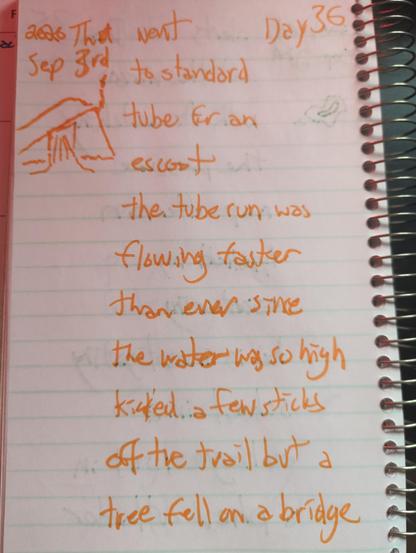 2020 Thur went Day 36
Sep 3rd to standard
tube for an
escort
the tube run was
flowing faster
than ever since
the water was so high
kicked a few sticks
off the trail but a
tree fell on a bridge